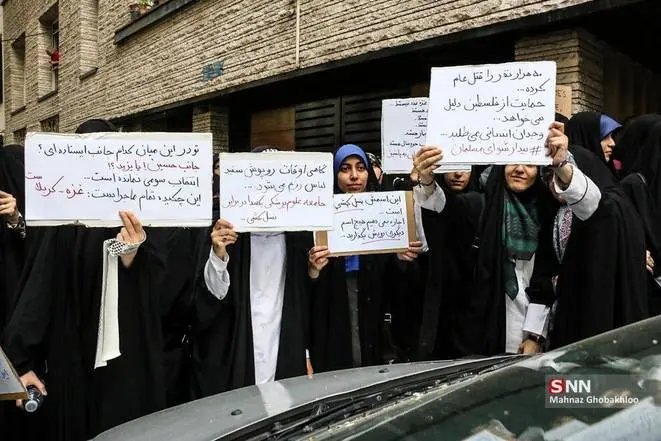 تو در این میان کدام جانب ایستاده‌ای؟
جانب حسین! یا یزید؟!
انتخاب سومی نمانده است...
این چکیده تمام ماجراست: غزه - کربلا ست
گاهی اوقات روپوش سفید
لباس رزم می‌شود...
جامعه علوم پزشکی یکصدا در برابر
نسل‌کشی...
این اسمش نسل‌کشی
است...
اجازه نمی‌دهیم هیچ اسم
دیگری رویش بگذارید...
۸۰ هزار نفر را قتل عام
کرده...
حمایت از فلسطین دلیل
نمی‌خواهد...
وجدان انسانی می‌طلبد...
#بیدار_شو_ای_مسلمان
SNN
Mahnaz Ghobakhloo